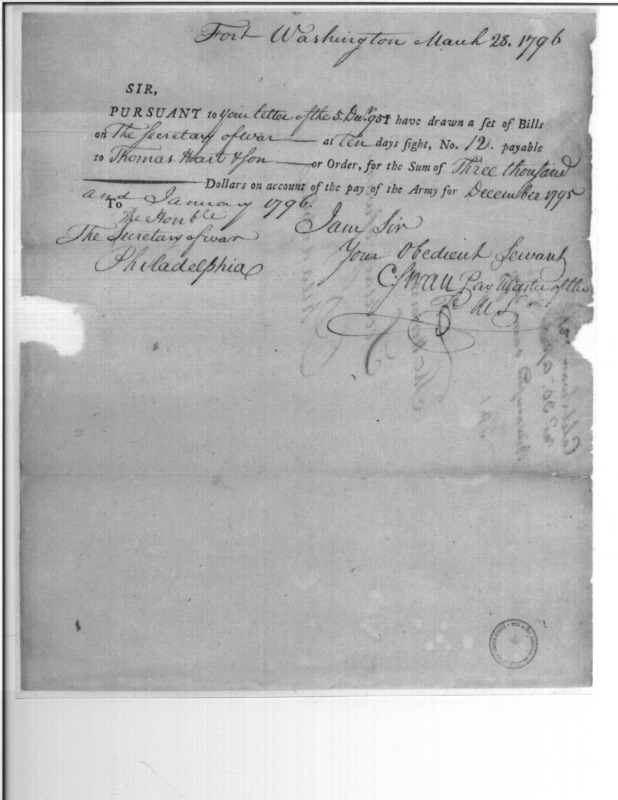 Fort Washington March 28. 1796
SIR,
PURSUANT to your letter of the 5. Decr. 95 I have drawn a set of Bills
on The Secretary of war — at ten days sight, No. 12. payable
to Thomas Hart & Son — or Order, for the Sum of Three thousand
— Dollars on account of the pay of the Army for December 1795
and January 1796.
To
The Honble
The Secretary of war
Philadelphia
I am Sir
Your Obedient Servant
C Swan Pay Master of the